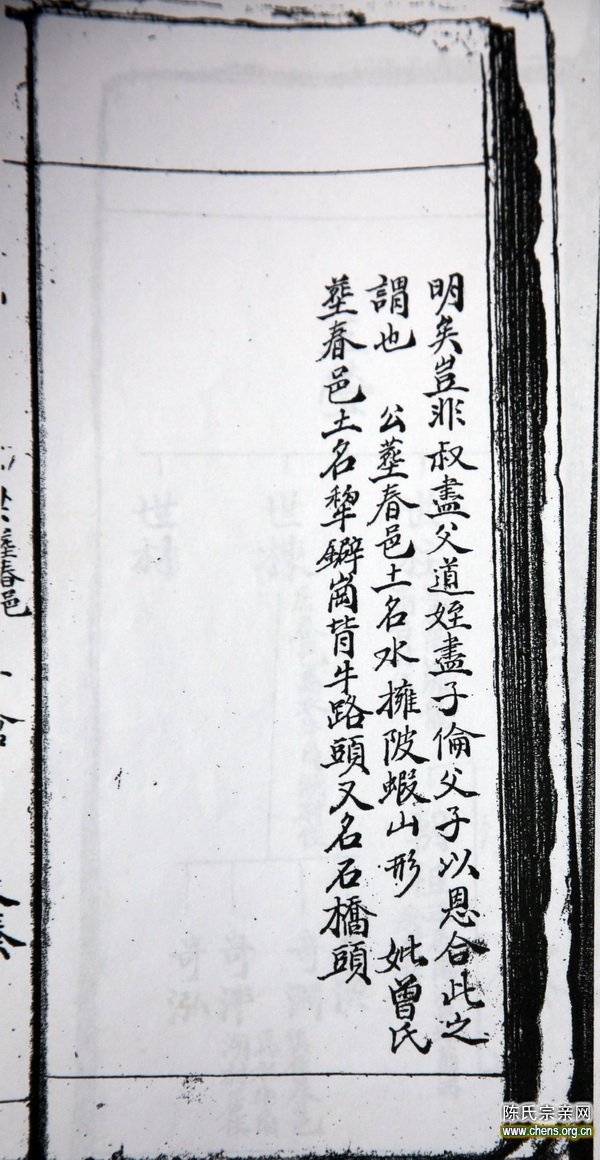 明矣豈非叔盡父道姪盡子倫父子以恩合此之
謂也 公塟春邑土名水擁陂蝦山形 妣曾氏
塟春邑土名犂鐴崗背牛路頭又名石橋頭
塟春邑
陈氏宗亲网
www.chens.org.cn